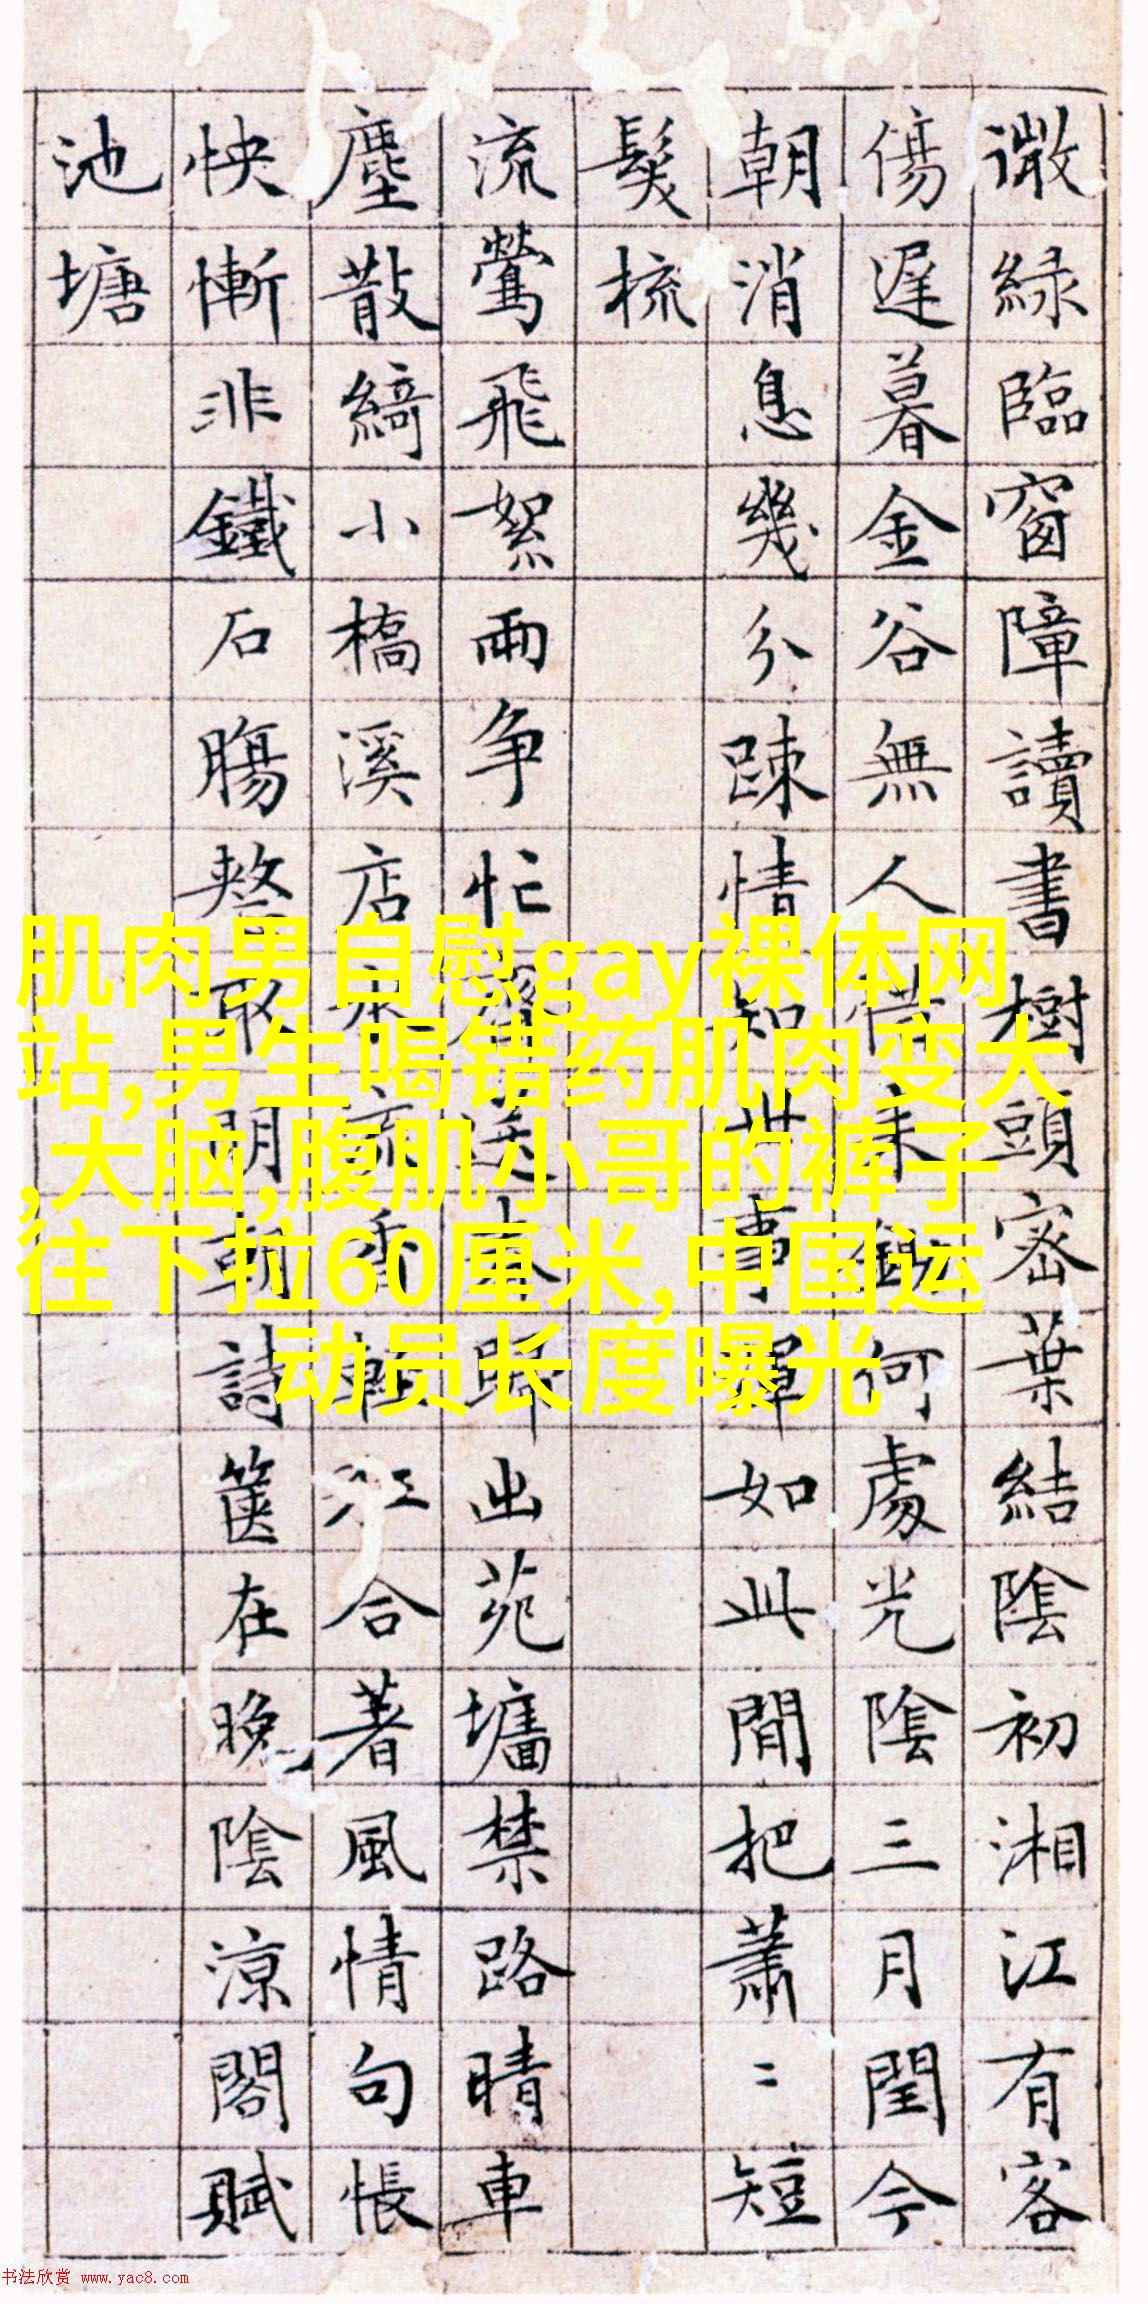 微綠臨窗障讀書樹頭密葉結陰初湘江有客
傷遲暮金谷無人何處光陰三月閏今
朝消息幾分踈情知世事渾如此間把蕭〻短
髮梳
流鶯飛絮兩争忙送春歸出苑墻禁路晴車
塵散綺小橋溪店水流香輕江合著風情句悵
怏慚非鐵石腸整取詩篋在晚陰涼閣賦
池塘
肌肉男自慰gay裸体网
站,男生喝错药肌肉变大
,大脑,腹肌小哥的裤子
往下拉60厘米,中国运
动员长度曝光
书法欣赏 www.yac8.com